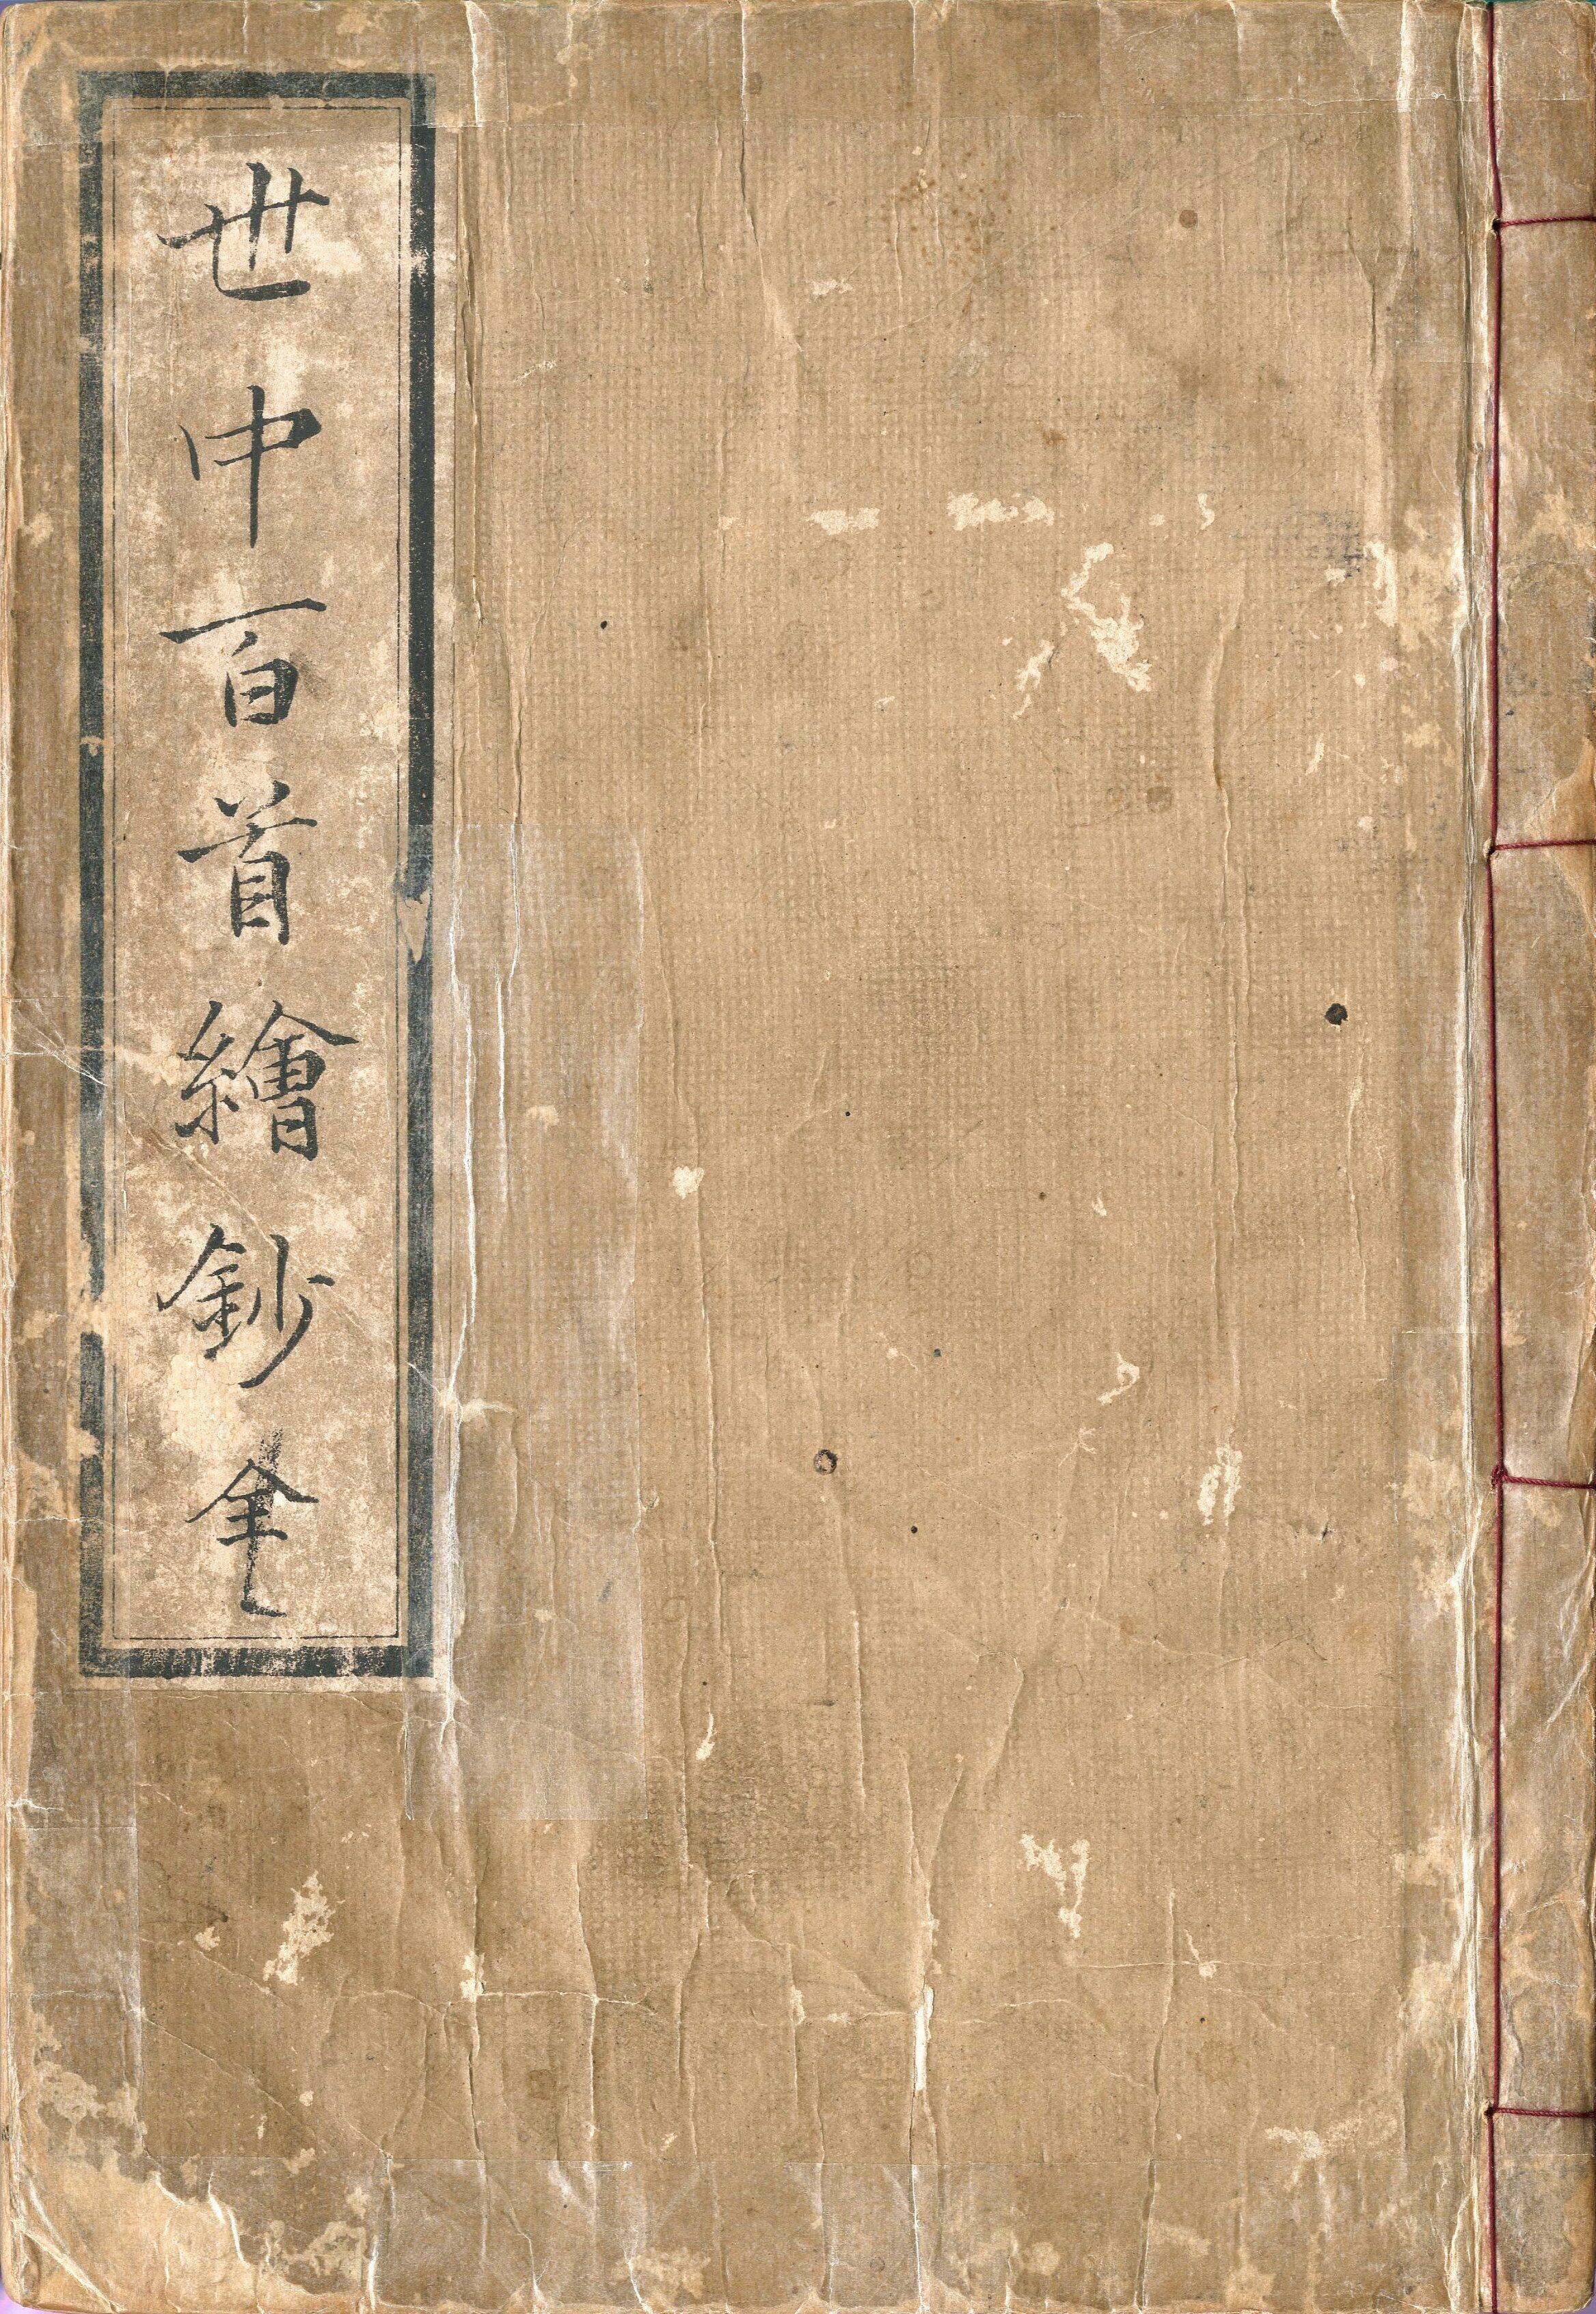 世中百首繪鈔全